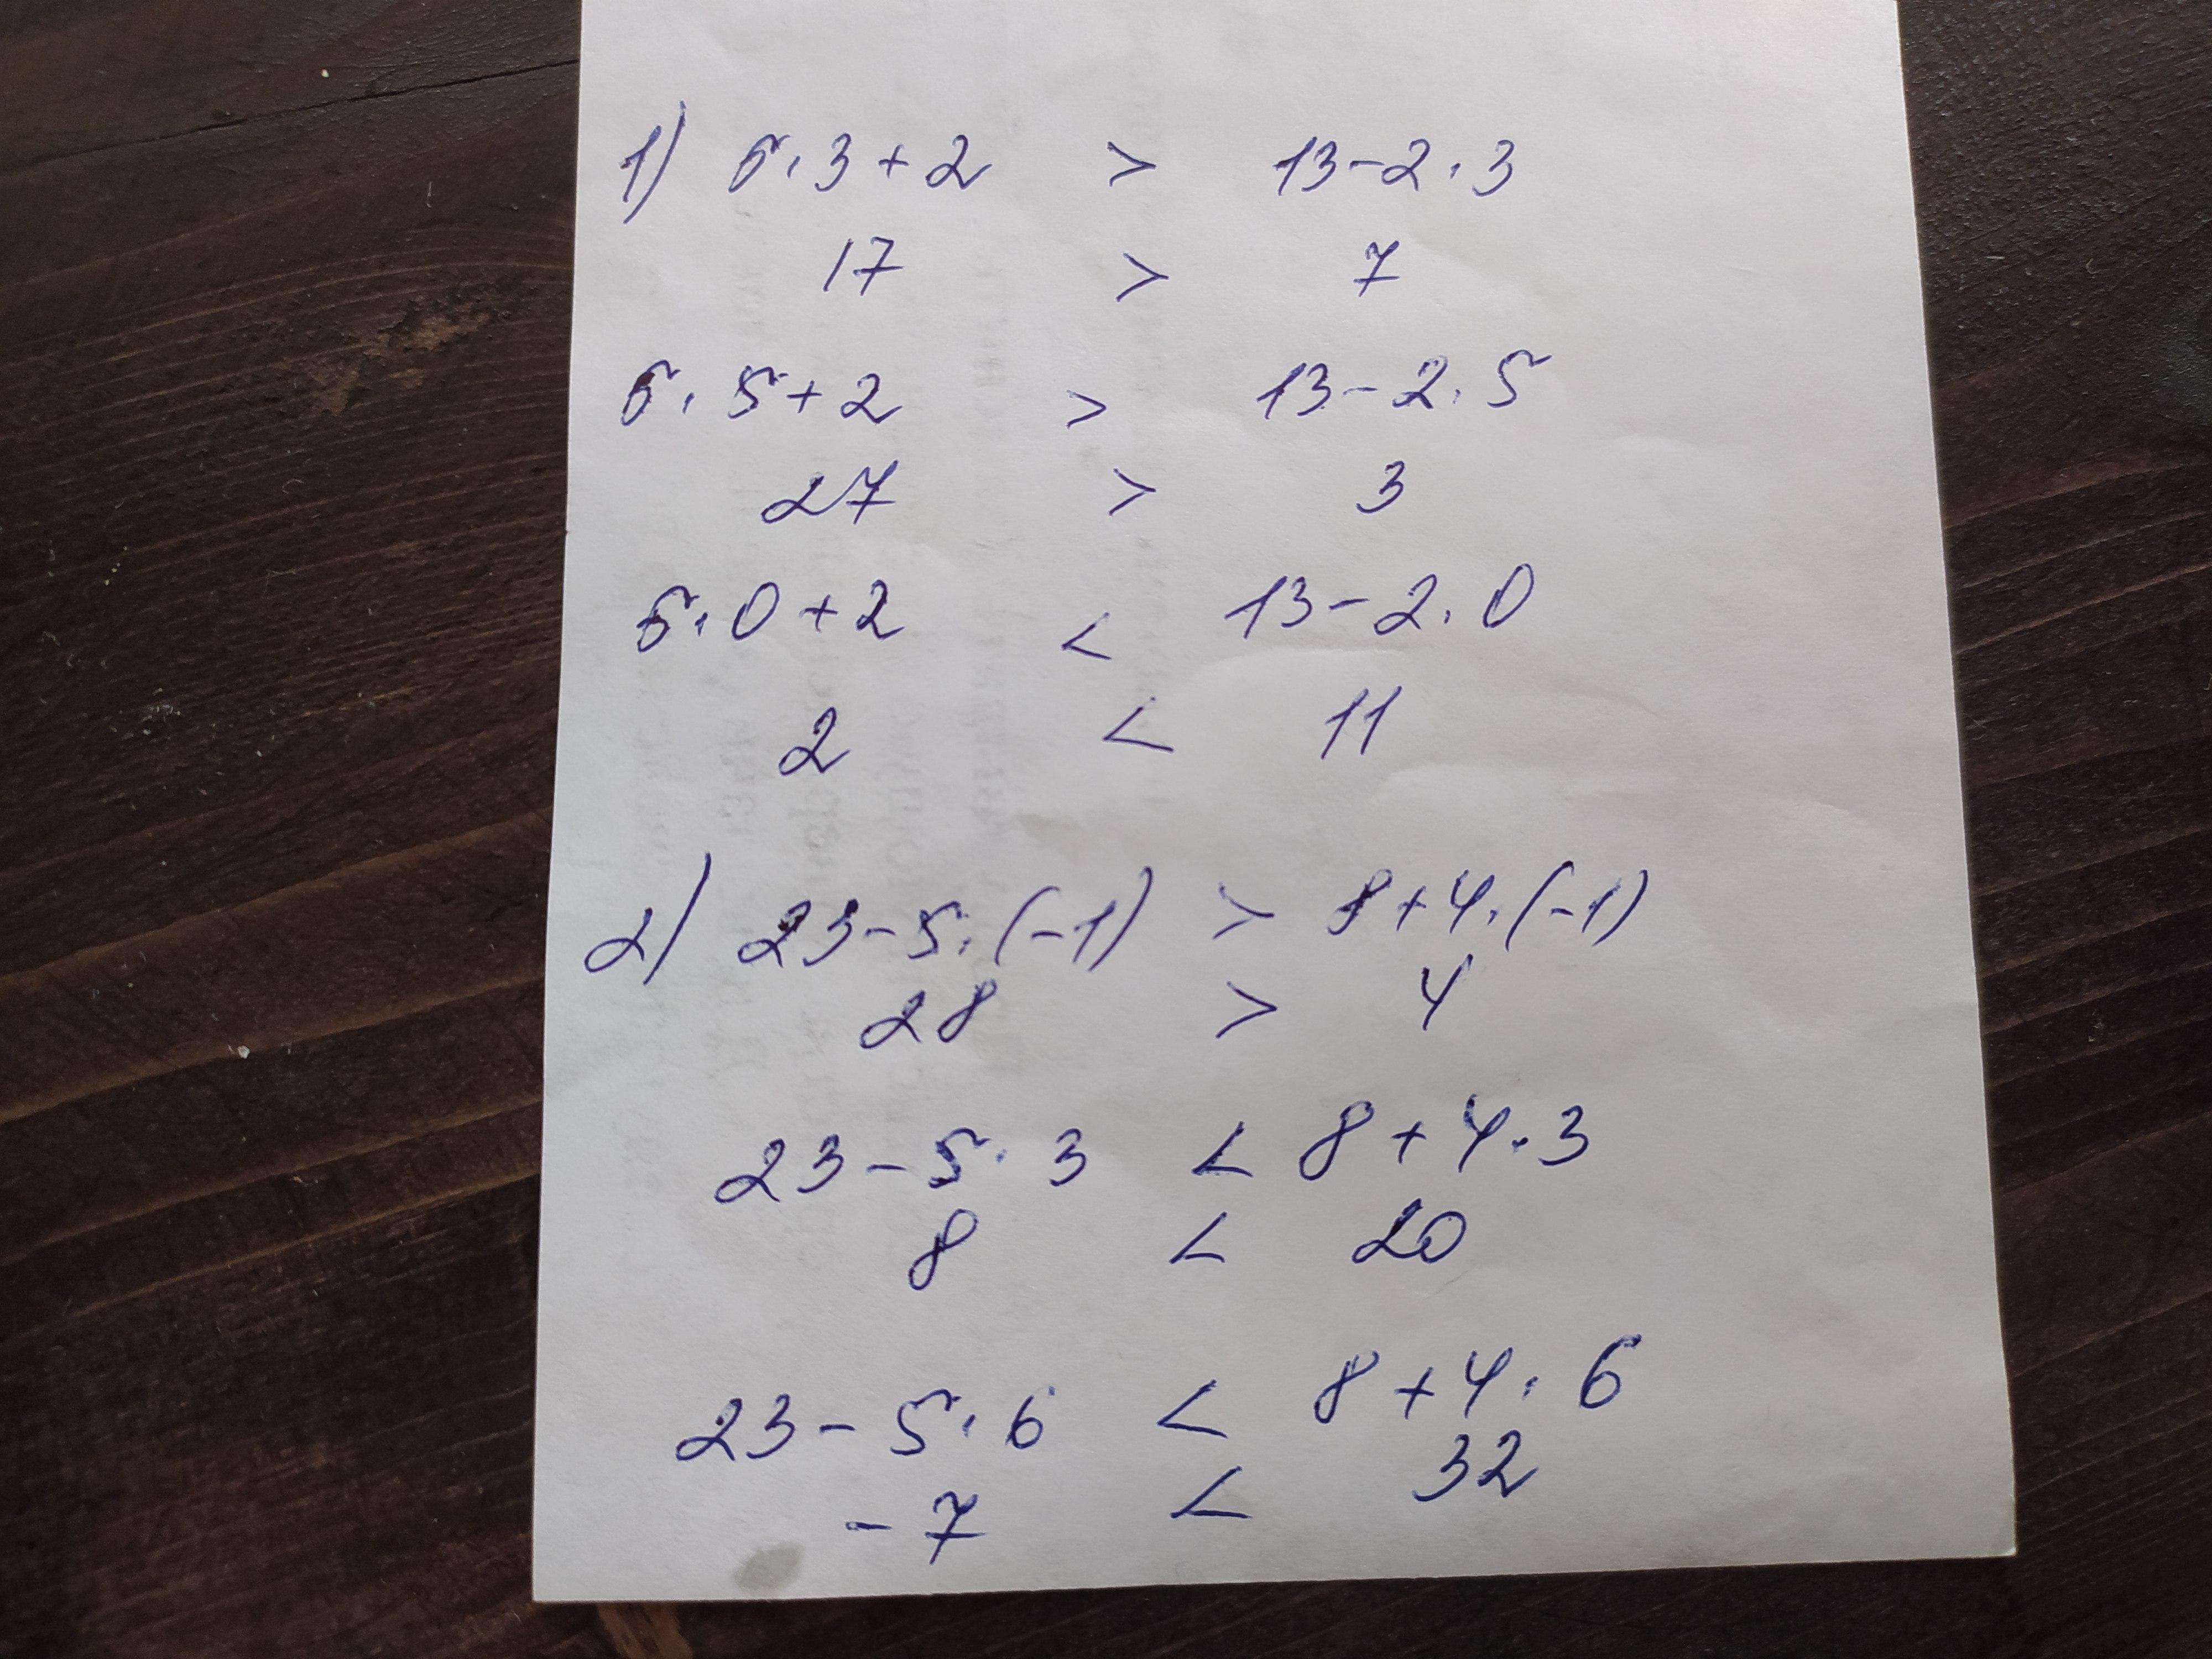 1) 5·3+2 > 13-2·3
17 > 7
5·5+2 > 13-2·5
27 > 3
5·0+2 < 13-2·0
2 < 11
2) 23-5·(-1) > 8+4·(-1)
28 > 4
23-5·3 < 8+4·3
8 < 20
23-5·6 < 8+4·6
-7 < 32